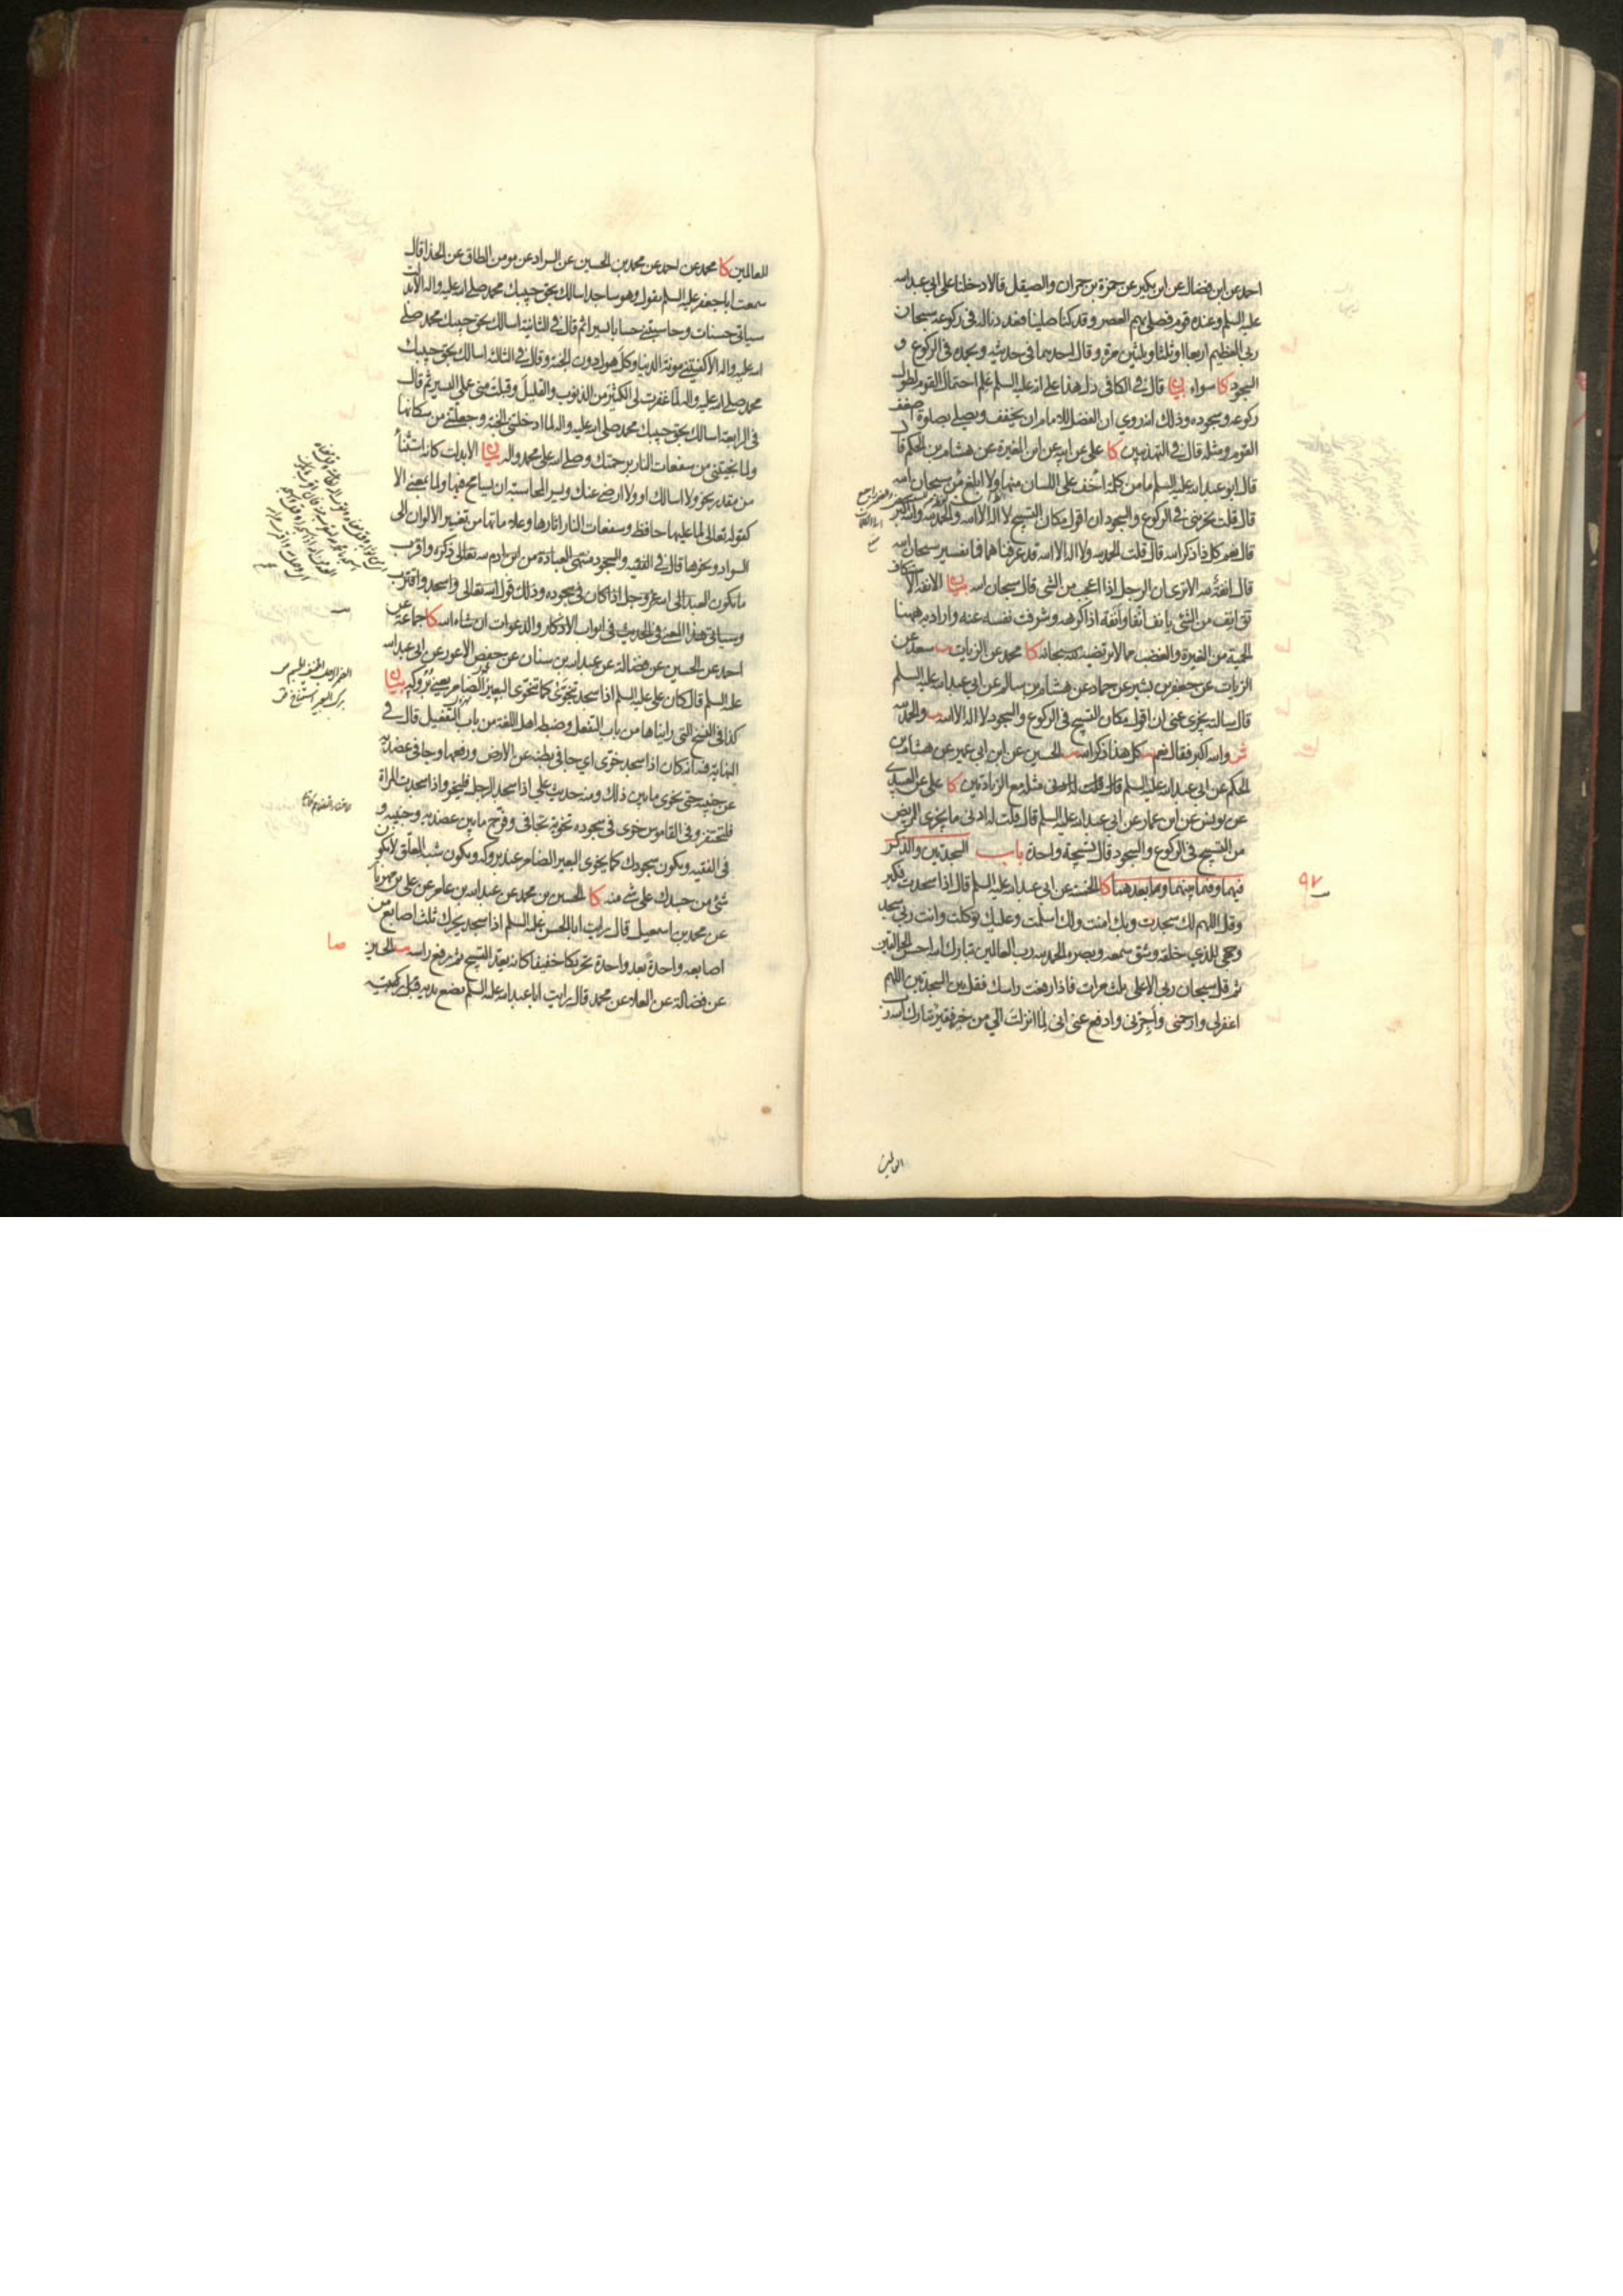 احمد عن ابن فضال عن ابن بكير عن حمزة بن حمران والصيقل قالا دخلنا على ابي عبد الله
عليه السلم وعنده قوم فصلى بهم العصر وقد كنا صلينا فعددنا له في ركوعه سبحان
ربي العظيم اربعا او ثلثا وثلثين مرة وقال احدهما في حديثه وبحمده في الركوع و
السجود كا سواء بيان قال في الكافي دل هذا على انه عليه السلم علم احتمال القوم لطول
ركوعه وسجوده وذلك انه روى ان الفضل للامام ان يخفف ويصلي بصلوة اضعف
القوم ومثله قال في التهذيبين كا علي عن ابيه عن ابن المغيرة عن هشام بن الحكم قال
قال ابو عبد الله عليه السلم ما من كلمة اخف على اللسان منها ولا ابلغ من سبحان الله
قال قلت يجزيني في الركوع والسجود ان اقول مكان التسبيح لا اله الا الله والحمد لله والله اكبر
قال نعم كل ذا ذكر الله قال قلت الحمد لله ولا اله الا الله قد عرفناهما فما تفسير سبحان الله
قال انفة لله الا ترى ان الرجل اذا اعجب من الشئ قال سبحان الله بيان الانفة الاستنكاف
يق انف من الشئ يانف انفا وانفة اذا كرهه وشرفت نفسه عنه واراد به ههنا
الحمية من الغيرة والغضب مما لا يرتضيه لنفسه سبحانه كا محمد عن الزيات يب سعد عن
الزيات عن جعفر بن بشير عن حماد عن هشام بن سالم عن ابي عبد الله عليه السلم
قال سالته يجزي عني ان اقول مكان التسبيح في الركوع والسجود لا اله الا الله يب والحمد لله
ش والله اكبر فقال نعم يب كل هذا ذكر الله يب الحسين عن ابن ابي عمير عن هشام بن
الحكم عن ابي عبد الله عليه السلم قال قلت له يجزئني مثله مع الزيادتين كا علي عن العبيدي
عن يونس عن ابن عمار عن ابي عبد الله عليه السلم قال قلت له ادنى ما يجزي المريض
من التسبيح في الركوع والسجود قال تسبيحة واحدة باب السجدتين والذكر
فيهما وفيما بينهما وما بعدهما كا الخمسة عن ابي عبد الله عليه السلم قال اذا سجدت فكبر
وقل اللهم لك سجدت وبك امنت ولك اسلمت وعليك توكلت وانت ربي سجد
وجهي للذي خلقه وشق سمعه وبصره الحمد لله رب العالمين تبارك الله احسن الخالقين
ثم قل سبحان ربي الاعلى ثلث مرات فاذا رفعت راسك فقل بين السجدتين اللهم
اغفر لي وارحمني واجرني وادفع عني اني لما انزلت الي من خير فقير تبارك الله رب
٩٧
للعالمين كا محمد عن احمد عن محمد بن الحسين عن السراد عن مومن الطاق عن الحذا قال
سمعت ابا جعفر عليه السلم يقول وهو ساجد اسالك بحق حبيبك محمد صلى الله عليه واله الا بدلت
سياتي حسنات وحاسبتني حسابا يسيرا ثم قال في الثانية اسالك بحق حبيبك محمد صلى
الله عليه واله الا كفيتني مونة الدنيا وكل هول دون الجنة وقال في الثالثة اسالك بحق حبيبك
محمد صلى الله عليه واله لما غفرت لي الكثير من الذنوب والقليل وقبلت مني عملي اليسير ثم قال
في الرابعة اسالك بحق حبيبك محمد صلى الله عليه واله لما ادخلتني الجنة وجعلتني من سكانها
ولما نجيتني من سفعات النار برحمتك وصلى الله على محمد واله بيان الا بدلت كانه استثناء
من مقدر نحو ولا اسالك او ولا ارضى عنك ويسر المحاسبة ان يسامح فيها ولما بمعنى الا
كقوله تعالى لما عليها حافظ وسفعات النار اثارها وعلاماتها من تغيير الالوان الى
السواد ونحوها قال في الفقيه والسجود منتهى العبادة من ابن ادم لله تعالى ذكره واقرب
ما يكون العبد الى الله عز وجل اذا كان في سجوده وذلك قول الله تعالى واسجد واقترب
وسياتي هذا المعنى في الحديث في ابواب الاذكار والدعوات ان شاء الله كا جماعة عن
احمد عن الحسين عن فضالة عن عبد الله بن سنان عن حفص الاعور عن ابي عبد الله
عليه السلم قال كان علي عليه السلم اذا سجد يتخوى كما يتخوى البعير الضامر يعني بروكه بيان
كذا في النسخ التي رايناها من باب التفعل وضبطه اهل اللغة من باب التفعيل قال في
النهاية فيه انه كان اذا سجد خوى اي جافى بطنه عن الارض ورفعها وجافى عضديه
عن جنبيه حتى يخوى ما بين ذلك ومنه حديث علي اذا سجد الرجل فليخو واذا سجدت المراة
فلتحتفز وفي القاموس خوى في سجوده تخوية تجافى وفرج ما بين عضديه وجنبيه و
في الفقيه ويكون سجودك كما يخوى البعير الضامر عند بروكه ويكون شبه المعلق لا يكون
شئ من جسدك على شئ منه كا الحسين بن محمد عن عبد الله بن عامر عن علي بن مهزيار
عن محمد بن اسمعيل قال رايت ابا الحسن عليه السلم اذا سجد يحرك ثلث اصابع من
اصابعه واحدة بعد واحدة تحريكا خفيفا كانه يعد التسبيح ثم يرفع راسه يب الحسين
عن فضالة عن العلا عن محمد قال رايت ابا عبد الله عليه السلم يضع يديه قبل ركبتيه
صا